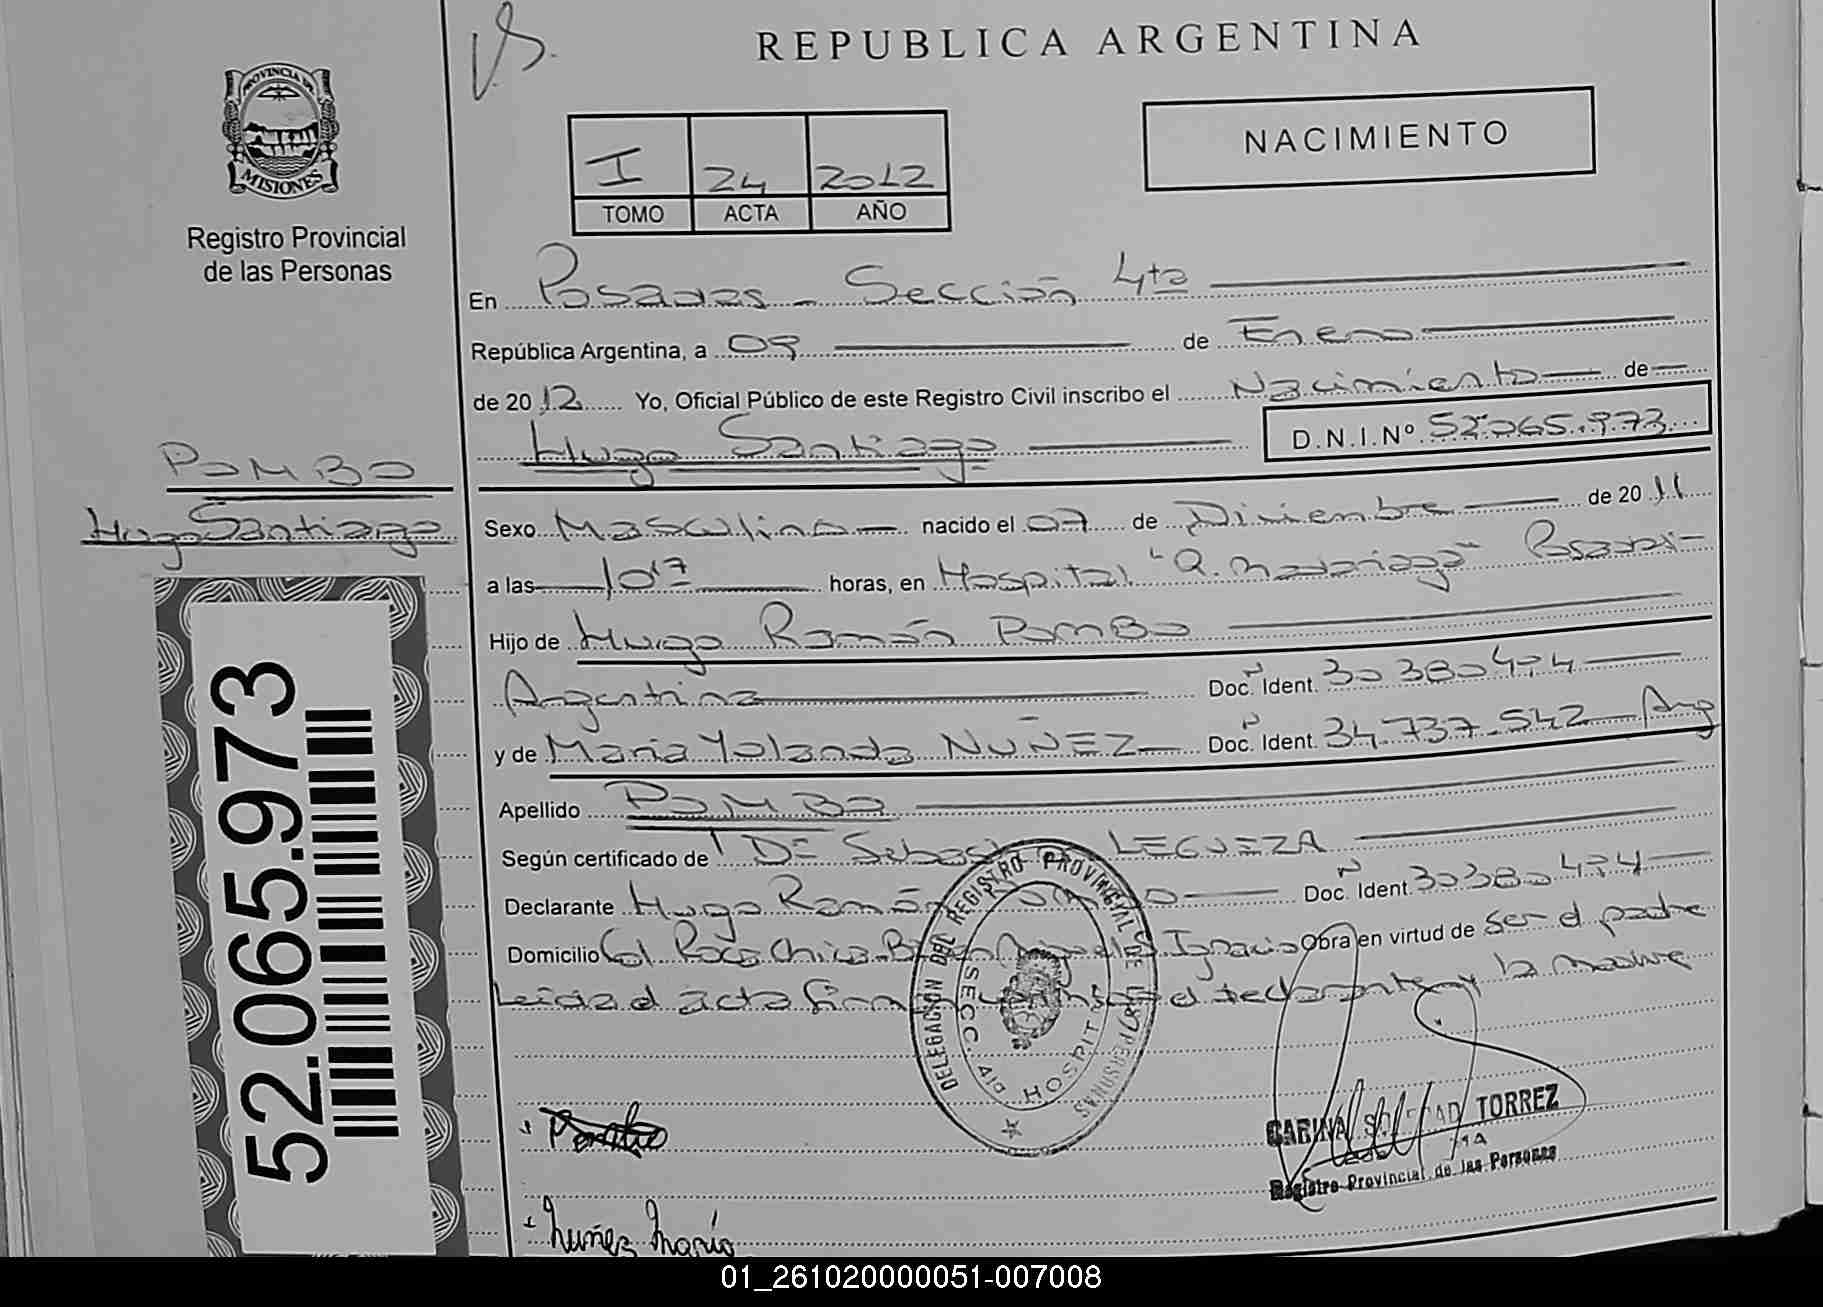 REPUBLICA ARGENTINA
PROVINCIA DE
MISIONES
Registro Provincial
de las Personas
NACIMIENTO
I 24 2012
TOMO ACTA AÑO
En Posadas - Sección 4ta
República Argentina, a 09 de Enero
de 2012 Yo, Oficial Público de este Registro Civil inscribo el Nacimiento de
Hugo Santiago D.N.I.Nº 52.065.973
POMBO
Hugo Santiago
Sexo Masculino nacido el 07 de Diciembre de 2011
a las 10 17 horas, en Hospital "R. Madariaga" Posadas
Hijo de Hugo Ramón POMBO
Argentina Doc. Ident. 30380474
y de María Yolanda NUÑEZ Doc. Ident. 34.737.542 Arg
Apellido POMBO
Según certificado de DE LEGUEZA
Declarante Hugo Ramón Doc. Ident. 30380474
Domicilio Col Roca Chica Ignacio Obra en virtud de ser el padre
Leida el acta el declarante y la madre
52.065.973
DELEGACION DEL REGISTRO PROVINCIAL DE LAS PERSONAS
SECC. HOSPIT
CARINA TORREZ
Registro Provincial de las Personas
Nuñez María
01_261020000051-007008